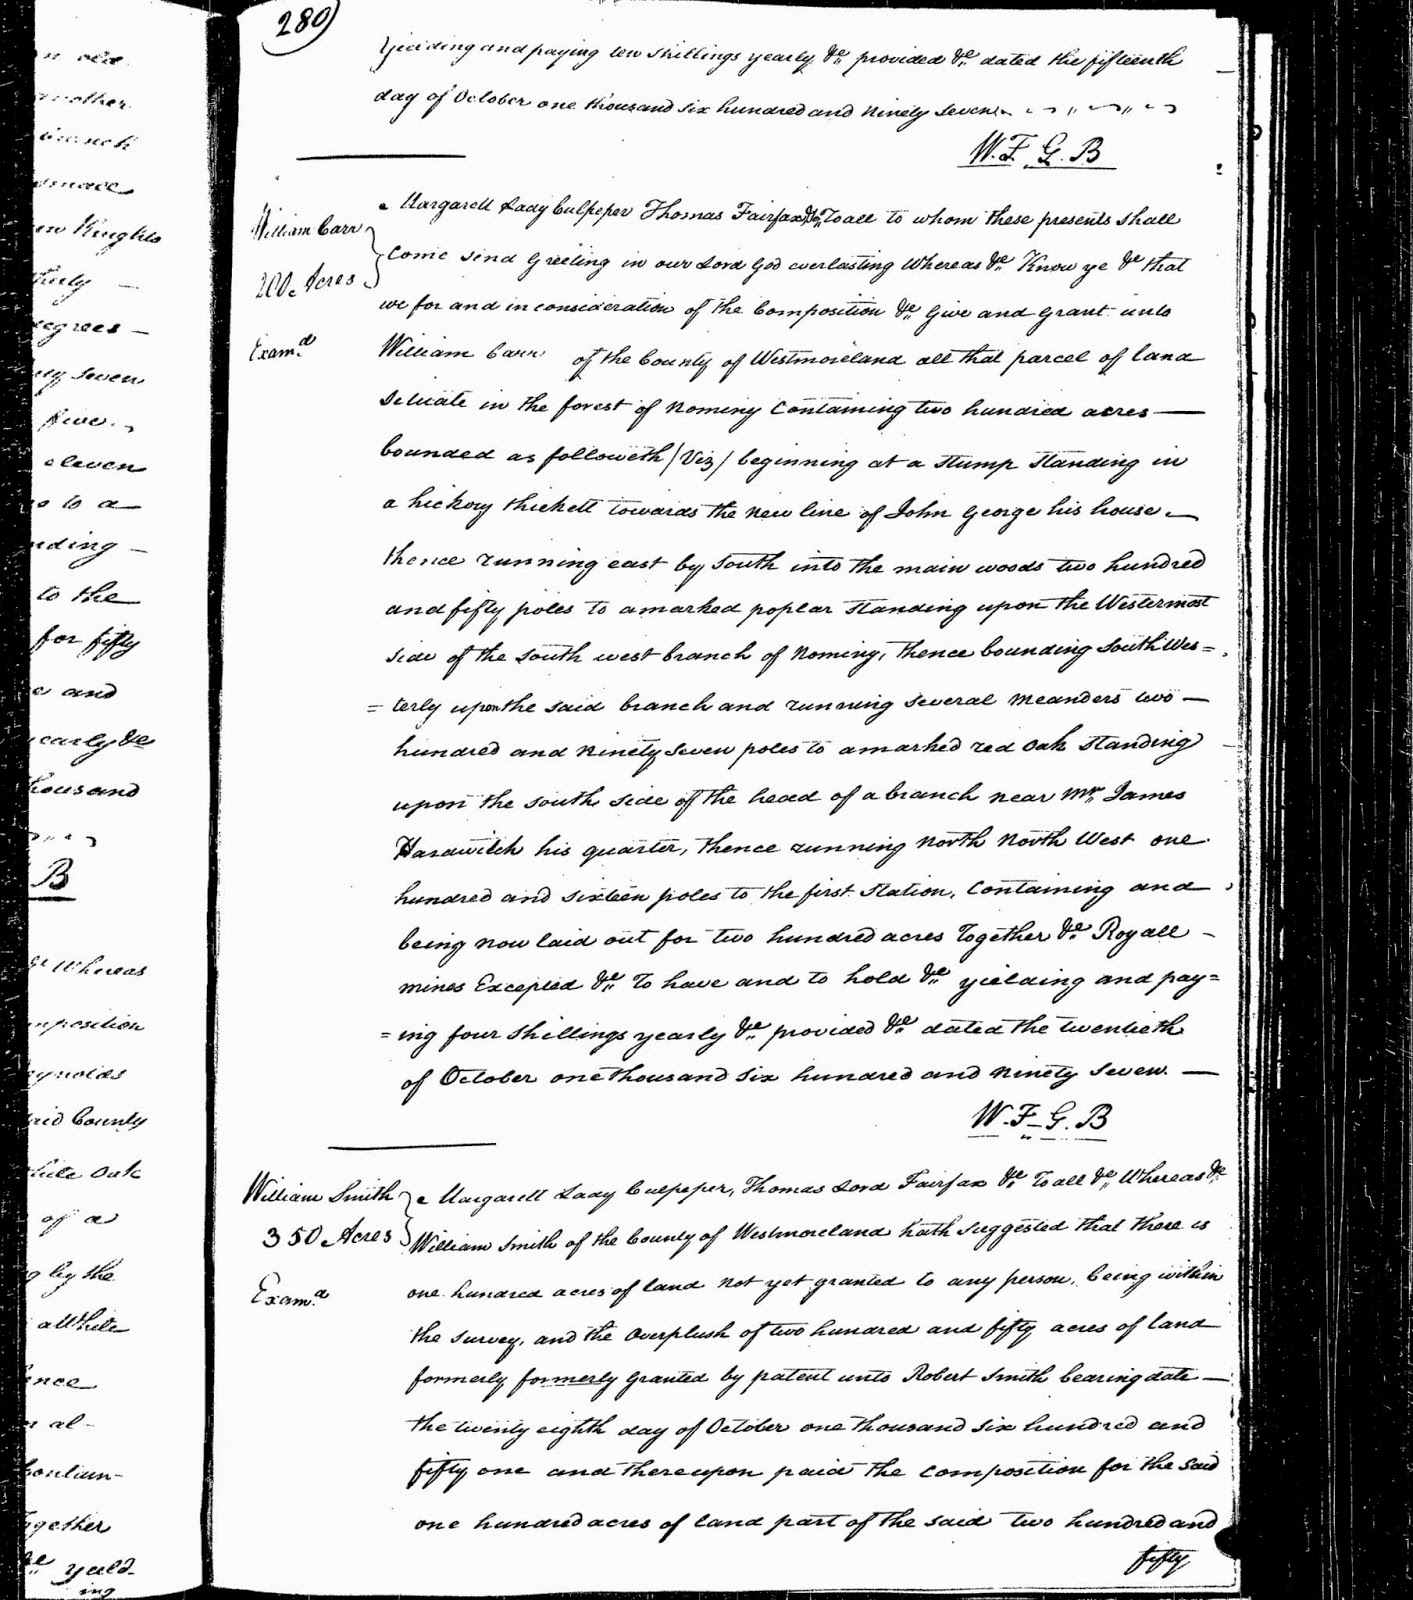 280
yeilding and paying ten shillings yearly &c. provided &c. dated the fifteenth
day of October one thousand six hundred and ninety seven.
W. F. G. B
William Carr
200 Acres
Exam.d
Margarett Lady Culpeper Thomas Fairfax &c. To all to whom these presents shall
Come send Greeting in our Lord God everlasting Whereas &c. Know ye &c that
we for and in consideration of the Composition &c. Give and Grant unto
William Carr of the County of Westmoreland all that parcel of land
Situate in the forest of Nominy Containing two hundred acres —
bounded as followeth /Viz/ beginning at a Stump Standing in
a hickory thickett towards the new line of John George his house. —
thence running east by South into the main woods two hundred
and fifty poles to a marked poplar Standing upon the Westermost
side of the South west branch of Nominy, thence bounding South Wes=
= terly upon the said branch and running several meanders two —
hundred and ninety seven poles to a marked red Oak Standing
upon the South side of the head of a branch near Mr. James
Hardwitch his quarter, thence running North North West one
hundred and sixteen poles to the first Station, Containing and
being now laid out for two hundred acres Together &c. Royall —
mines Excepted &c. To have and to hold &c. yielding and pay=
= ing four Shillings yearly &c. provided &c. dated the twentieth
of October one thousand Six hundred and Ninety Seven. —
W. F. G. B
William Smith
350 Acres
Exam.d
Margarett Lady Culpeper, Thomas Lord Fairfax &c. To all &c. Whereas &c.
William Smith of the County of Westmoreland hath Suggested that there is
one hundred acres of land not yet granted to any person, being within
the Survey, and the Overplush of two hundred and fifty acres of land
formerly formerly Granted by patent unto Robert Smith bearing date —
the twenty eighth day of October one thousand Six hundred and
fifty one and thereupon paid the Composition for the Said
one hundred acres of land part of the said two hundred and
fifty